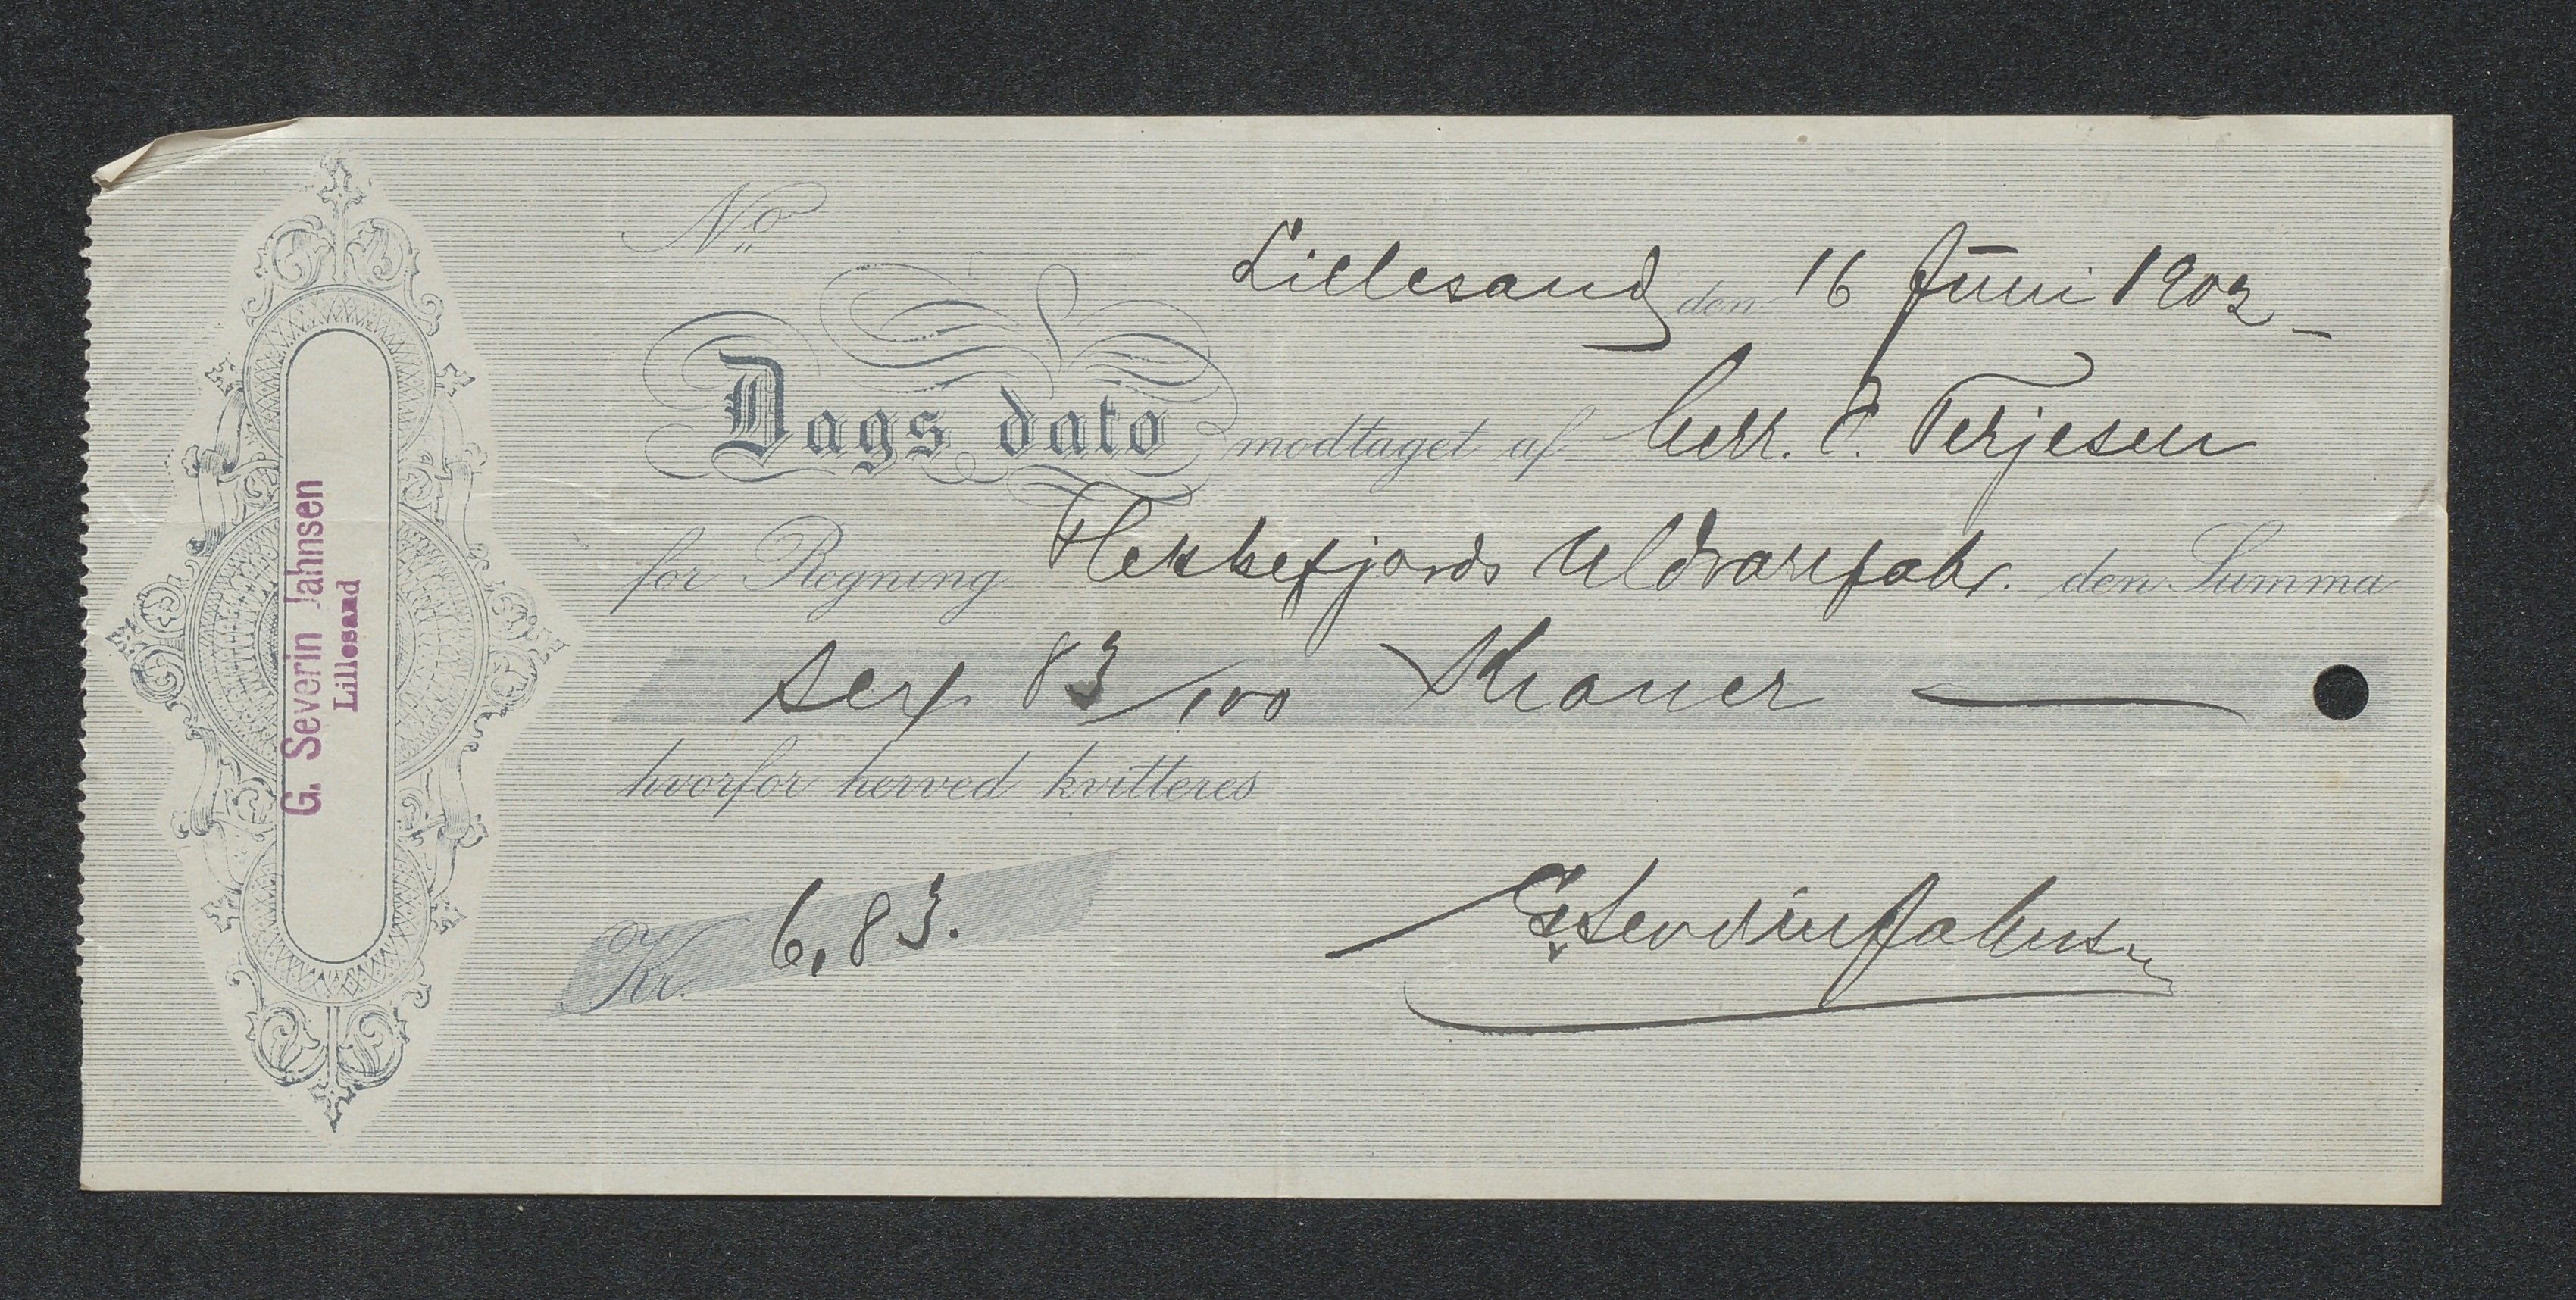 No
Lillesand den 16 Juni 1902
Dags dato modtaget af Herr. O. Terjesen
for Regning Flekkefjords Uldvarefabr. den Summa
sex 83/100 Kroner
hvorfor herved kvitteres
Kr. 6,83.
G. Severin Jahnsen
G. Severin Jahnsen
Lillesand